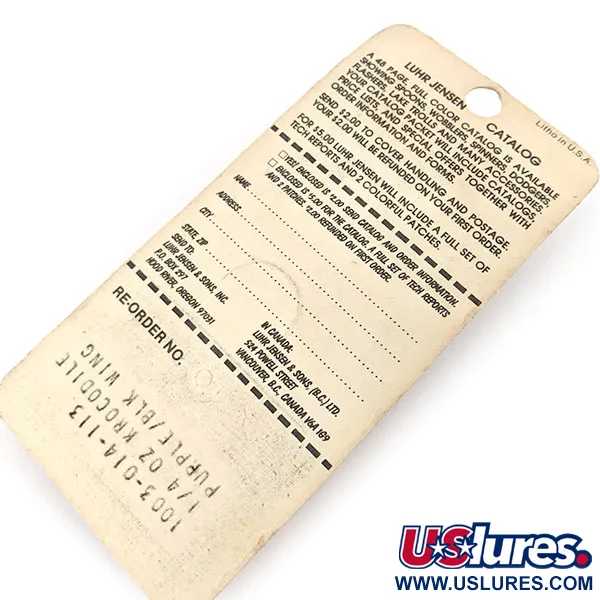 LUHR JENSEN CATALOG
A 48 PAGE, FULL COLOR CATALOG IS AVAILABLE
SHOWING SPOONS, WOBBLERS, SPINNERS, DODGERS,
FLASHERS, LAKE TROLLS AND MANY ACCESSORIES.
YOUR CATALOG PACKET WILL INCLUDE CATALOGS,
PRICE LISTS, AND SPECIAL OFFERS TOGETHER WITH
ORDER INFORMATION AND FORMS.
SEND $2.00 TO COVER HANDLING AND POSTAGE.
YOUR $2.00 WILL BE REFUNDED ON YOUR FIRST ORDER.
FOR $5.00 LUHR JENSEN WILL INCLUDE A FULL SET OF
TECH REPORTS AND 2 COLORFUL PATCHES.
Litho in U.S.A.
YES! ENCLOSED IS $2.00 SEND CATALOG AND ORDER INFORMATION.
ENCLOSED IS $5.00 FOR THE CATALOG, A FULL SET OF TECH REPORTS
AND 2 PATCHES. $2.00 REFUNDED ON FIRST ORDER.
NAME
ADDRESS
CITY
STATE, ZIP
SEND TO:
LUHR JENSEN & SONS, INC.
P.O. BOX 297
HOOD RIVER, OREGON 97031
IN CANADA:
LUHR JENSEN & SONS, (B.C.) LTD.
524 POWELL STREET
VANCOUVER, B.C., CANADA V6A 1G9
RE-ORDER NO.
1003-014-113
1/4 OZ KROCODILE
PUPPLE/BLK WING
USlures.
WWW.USLURES.COM